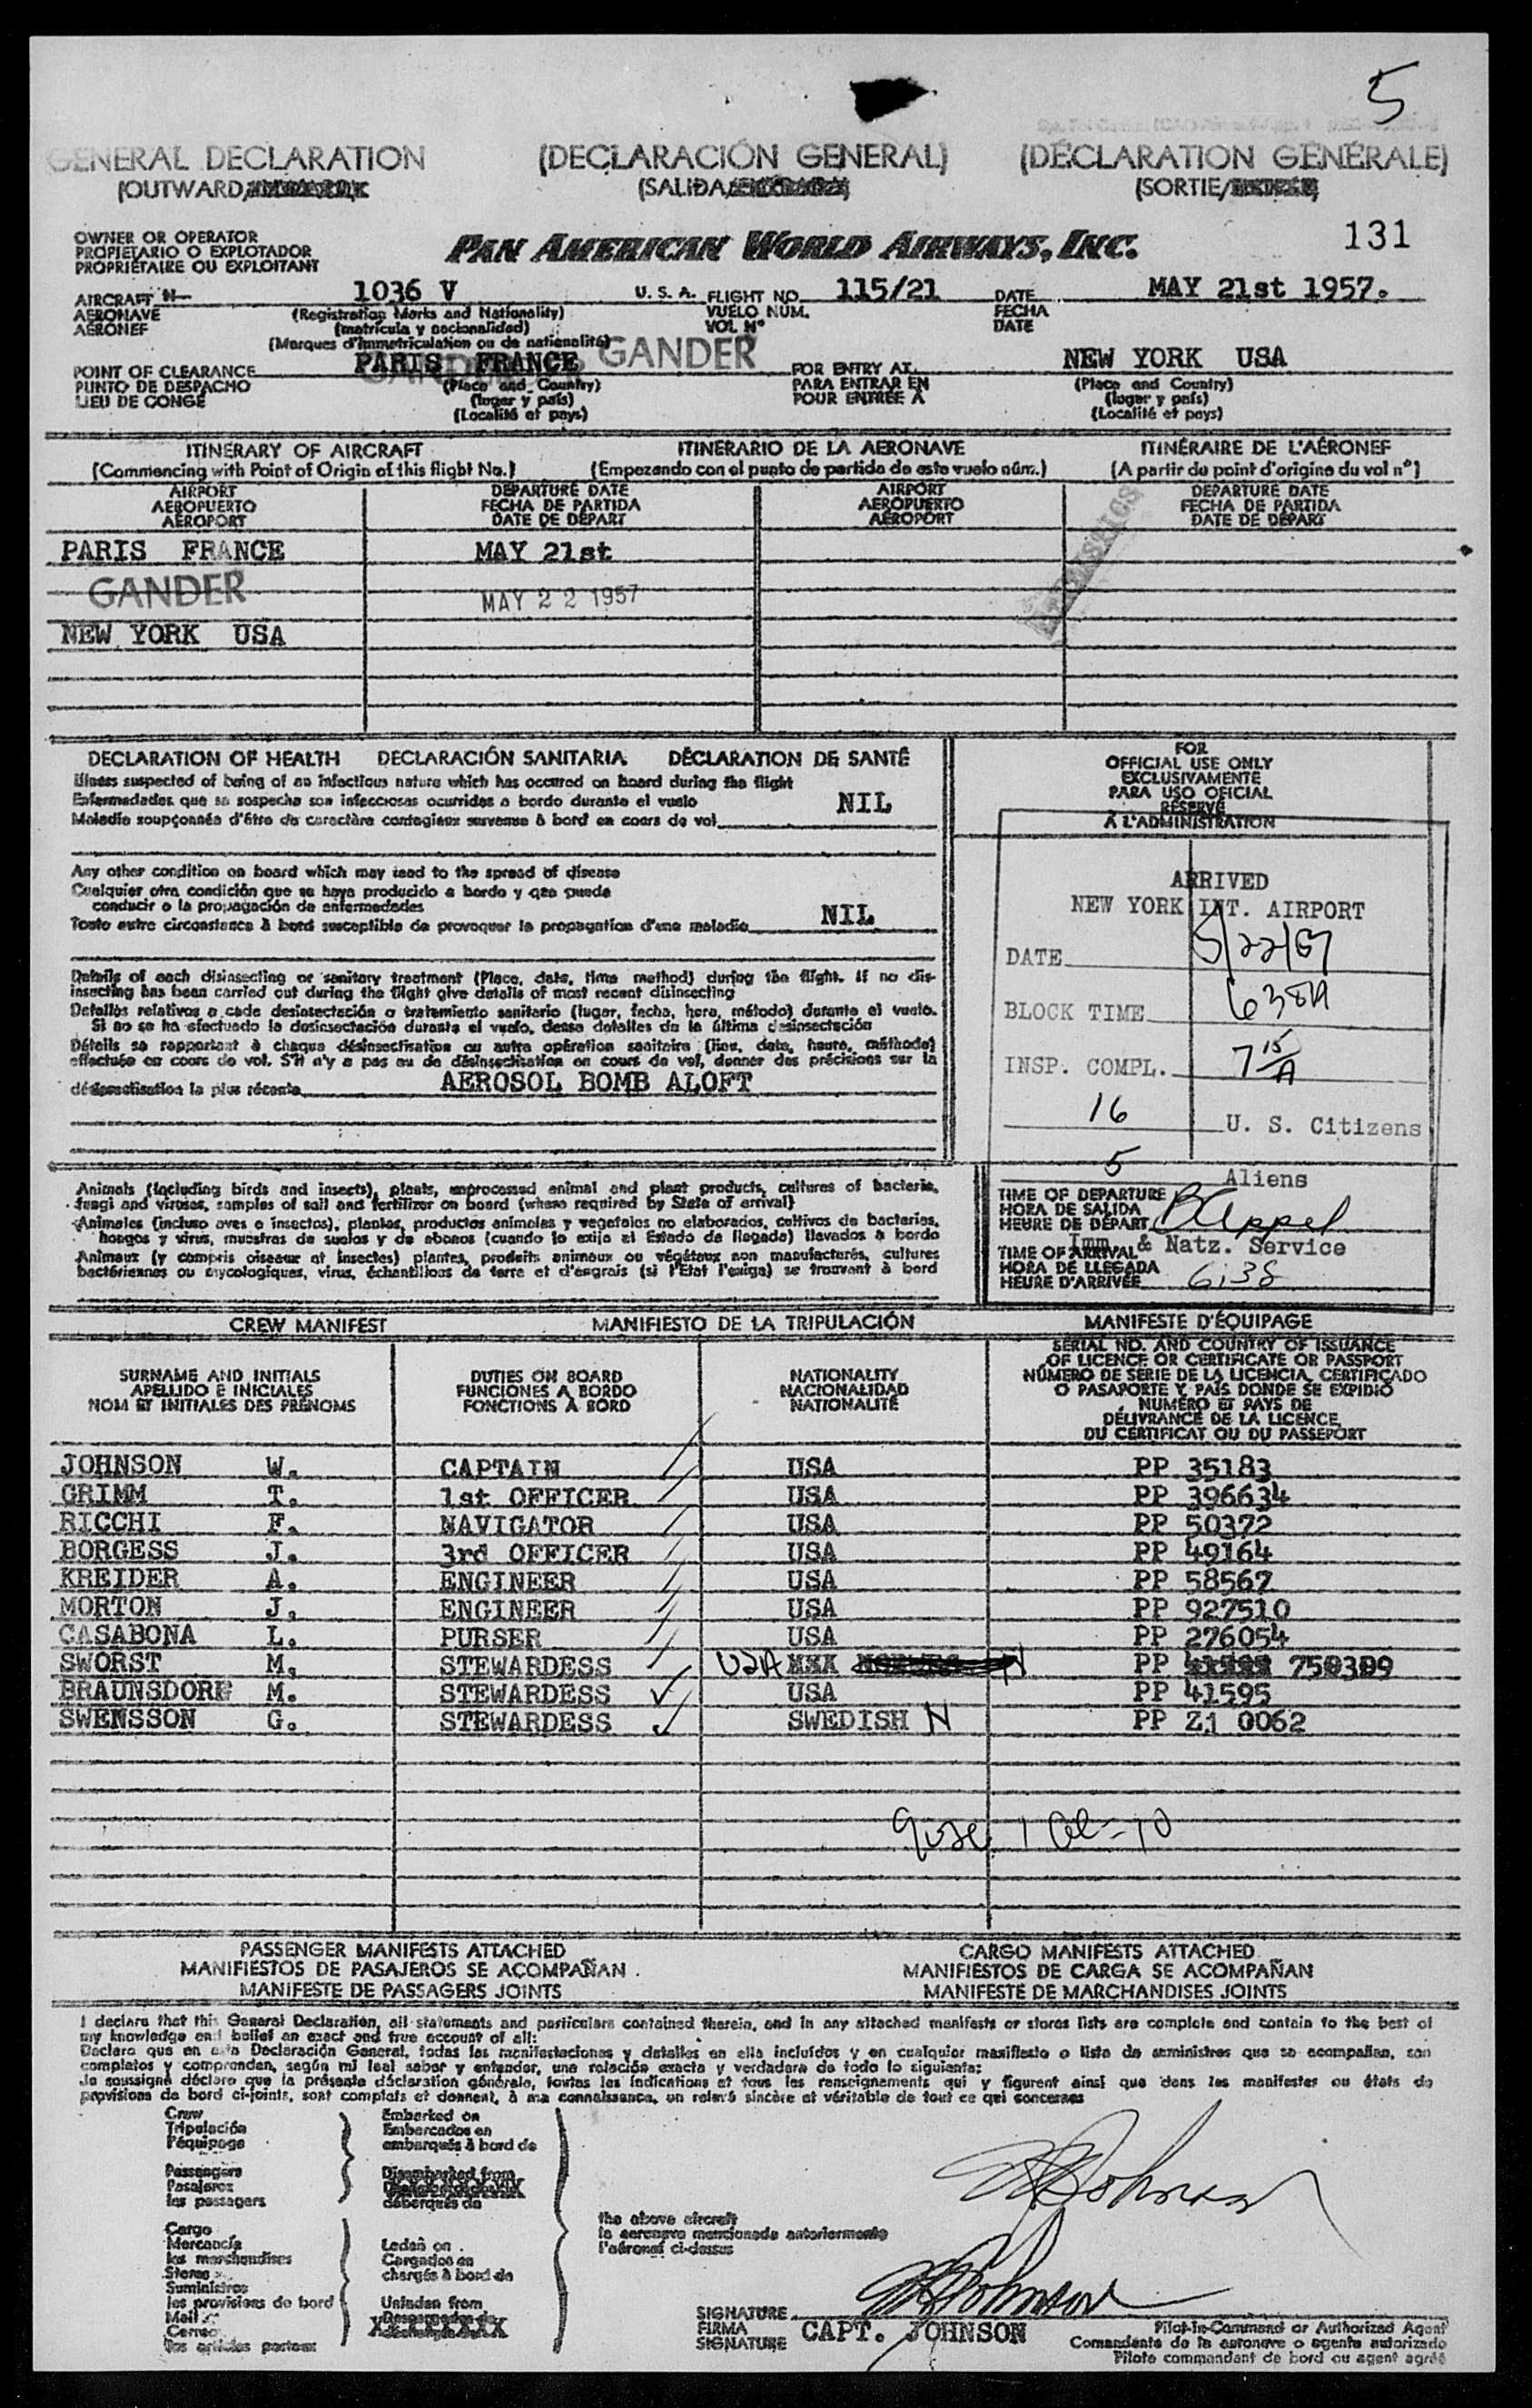 5
GENERAL DECLARATION (DECLARACIÓN GENERAL) (DÉCLARATION GÉNÉRALE)
(OUTWARD/ (SALIDA/ (SORTIE/
OWNER OR OPERATOR
PROPIETARIO O EXPLOTADOR
PROPRIÉTAIRE OU EXPLOITANT
PAN AMERICAN WORLD AIRWAYS, INC. 131
AIRCRAFT N— 1036 V U. S. A. FLIGHT NO. 115/21 DATE MAY 21st 1957.
AERONAVE (Registration Marks and Nationality) VUELO NÚM. FECHA
AÉRONEF (matrícula y nacionalidad) VOL Nº DATE
(Marques d'immatriculation ou de nationalité)
POINT OF CLEARANCE PARIS FRANCE GANDER FOR ENTRY AT NEW YORK USA
PUNTO DE DESPACHO (Place and Country) PARA ENTRAR EN (Place and Country)
LIEU DE CONGÉ (lugar y país) POUR ENTRÉE À (lugar y país)
(Localité et pays) (Localité et pays)
ITINERARY OF AIRCRAFT ITINERARIO DE LA AERONAVE ITINÉRAIRE DE L'AÉRONEF
(Commencing with Point of Origin of this flight No.) (Empezando con el punto de partida de este vuelo núm.) (A partir du point d'origine du vol nº)
AIRPORT DEPARTURE DATE AIRPORT DEPARTURE DATE
AEROPUERTO FECHA DE PARTIDA AEROPUERTO FECHA DE PARTIDA
AÉROPORT DATE DE DÉPART AÉROPORT DATE DE DÉPART
PARIS FRANCE MAY 21st
GANDER MAY 22 1957
NEW YORK USA
DECLARATION OF HEALTH DECLARACIÓN SANITARIA DÉCLARATION DE SANTÉ
Illness suspected of being of an infectious nature which has occured on board during the flight
Enfermedades que se sospecha son infecciosas ocurridas a bordo durante el vuelo NIL
Maladie soupçonnée d'être de caractère contagieux survenue à bord en cours de vol
Any other condition on board which may lead to the spread of disease
Cualquier otra condición que se haya producido a bordo y que pueda
conducir a la propagación de enfermedades
Toute autre circonstance à bord susceptible de provoquer la propagation d'une maladie NIL
Details of each disinsecting or sanitary treatment (Place, date, time method) during the flight. If no dis-
insecting has been carried out during the flight give details of most recent disinsecting
Detalles relativos a cada desinsectación o tratamiento sanitario (lugar, fecha, hora, método) durante el vuelo.
Si no se ha efectuado la desinsectación durante el vuelo, dense detalles de la última desinsectación
Détails se rapportant à chaque désinsectisation ou autre opération sanitaire (lieu, date, heure, méthode)
effectuée en cours de vol. S'il n'y a pas eu de désinsectisation en cours de vol, donner des précisions sur la
désinsectisation la plus récente AEROSOL BOMB ALOFT
FOR
OFFICIAL USE ONLY
EXCLUSIVAMENTE
PARA USO OFICIAL
RÉSERVÉ
À L'ADMINISTRATION
ARRIVED
NEW YORK INT. AIRPORT
DATE 5/22/57
BLOCK TIME 638A
INSP. COMPL. 7 15/A
16 U. S. Citizens
5 Aliens
Animals (including birds and insects), plants, unprocessed animal and plant products, cultures of bacteria,
fungi and viruses, samples of soil and fertilizer on board (where required by State of arrival)
Animales (incluso aves e insectos), plantas, productos animales y vegetales no elaborados, cultivos de bacterias,
hongos y virus, muestras de suelos y de abonos (cuando lo exija el Estado de llegada) llevados a bordo
Animaux (y compris oiseaux et insectes) plantes, produits animaux ou végétaux non manufacturés, cultures
bactériennes ou mycologiques, virus, échantillons de terre et d'engrais (si l'Etat l'exige) se trouvant à bord
TIME OF DEPARTURE
HORA DE SALIDA
HEURE DE DÉPART
Imm. & Natz. Service
TIME OF ARRIVAL
HORA DE LLEGADA
HEURE D'ARRIVÉE 6:38
CREW MANIFEST MANIFIESTO DE LA TRIPULACIÓN MANIFESTE D'ÉQUIPAGE
SURNAME AND INITIALS
APELLIDO E INICIALES
NOM ET INITIALES DES PRÉNOMS
DUTIES ON BOARD
FUNCIONES A BORDO
FONCTIONS À BORD
NATIONALITY
NACIONALIDAD
NATIONALITÉ
SERIAL NO. AND COUNTRY OF ISSUANCE
OF LICENCE OR CERTIFICATE OR PASSPORT
NÚMERO DE SERIE DE LA LICENCIA, CERTIFICADO
O PASAPORTE Y PAÍS DONDE SE EXPIDIÓ
NUMÉRO ET PAYS DE
DÉLIVRANCE DE LA LICENCE,
DU CERTIFICAT OU DU PASSEPORT
JOHNSON W. CAPTAIN USA PP 35183
GRIMM T. 1st OFFICER USA PP 396634
RICCHI F. NAVIGATOR USA PP 50372
BORGESS J. 3rd OFFICER USA PP 49164
KREIDER A. ENGINEER USA PP 58567
MORTON J. ENGINEER USA PP 927510
CASABONA L. PURSER USA PP 276054
SWORST M. STEWARDESS USA XXX PP 750309
BRAUNSDORF M. STEWARDESS USA PP 41595
SWENSSON G. STEWARDESS SWEDISH N PP Z1 0062
9 USC 1 Al = 10
PASSENGER MANIFESTS ATTACHED CARGO MANIFESTS ATTACHED
MANIFIESTOS DE PASAJEROS SE ACOMPAÑAN MANIFIESTOS DE CARGA SE ACOMPAÑAN
MANIFESTE DE PASSAGERS JOINTS MANIFESTE DE MARCHANDISES JOINTS
I declare that this General Declaration, all statements and particulars contained therein, and in any attached manifests or stores lists are complete and contain to the best of
my knowledge and belief an exact and true account of all:
Declaro que en esta Declaración General, todas las manifestaciones y detalles en ella incluídos y en cualquier manifiesto o lista de suministros que se acompañan, son
completos y comprenden, según mi leal saber y entender, una relación exacta y verdadera de todo lo siguiente:
Je soussigné déclare que la présente déclaration générale, toutes les indications et tous les renseignements qui y figurent ainsi que dans les manifestes ou états de
provisions de bord ci-joints, sont complets et donnent, à ma connaissance, un relevé sincère et véritable de tout ce qui concerne:
Crew Embarked on
Tripulación Embarcados en
l'équipage embarqués à bord de
Passengers Disembarked from
Pasajeros
les passagers débarqués de
the above aircraft
la aeronave mencionada anteriormente
l'aéronef ci-dessus
Cargo
Mercancía Laden on
les marchandises Cargados en
Stores chargés à bord de
Suministros
les provisions de bord Unladen from
Mail
Correo XXXXXXXX
les articles postaux
W Johnson
W Johnson
SIGNATURE
FIRMA CAPT. JOHNSON
SIGNATURE
Pilot-in-Command or Authorized Agent
Comandante de la aeronave o agente autorizado
Pilote commandant de bord ou agent agréé